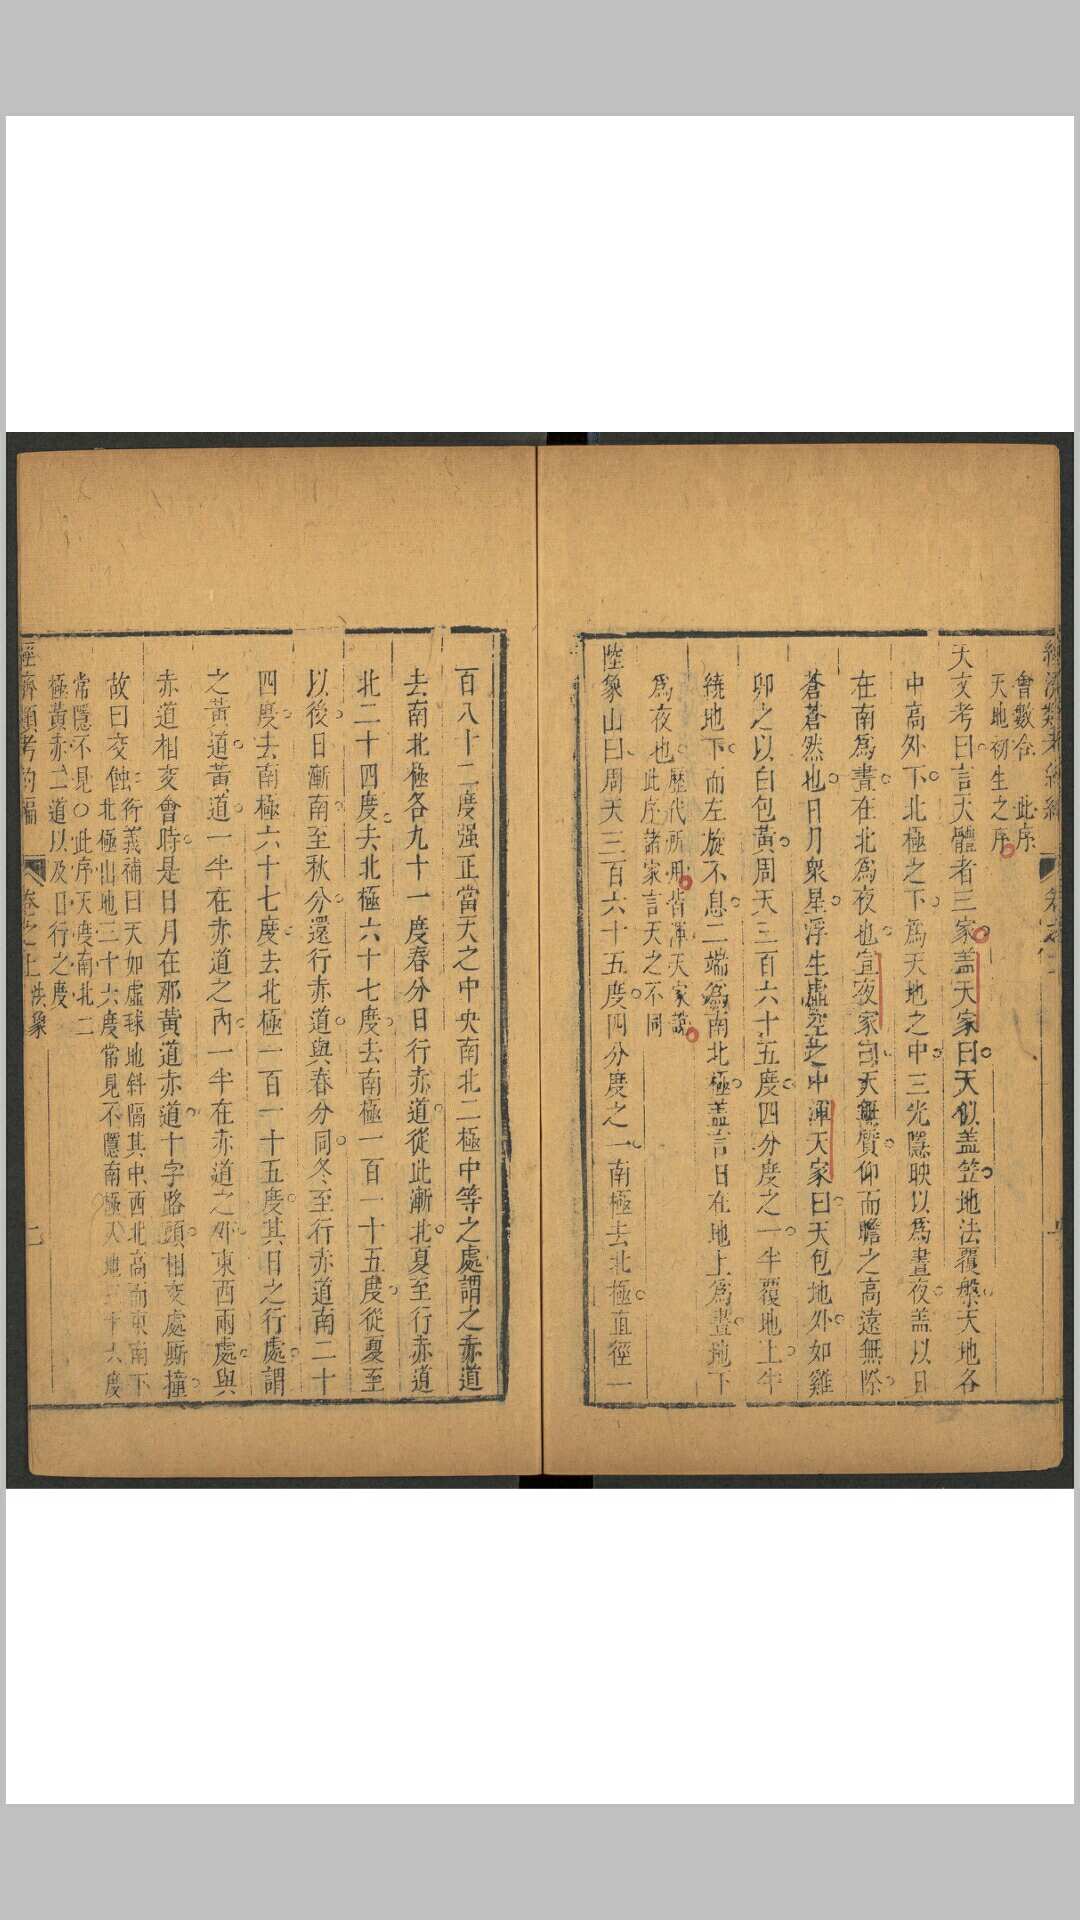 會數合
此序
天地初生之序
天文考曰言天體者三家蓋天家曰天似蓋笠地法覆槃天地各
中高外下北極之下爲天地之中三光隱映以爲晝夜蓋以日
在南爲晝在北爲夜也宣夜家曰天無質仰而瞻之高遠無際
蒼蒼然也日月衆星浮生虛空之中渾天家曰天包地外如雞
卵之以白包黃周天三百六十五度四分度之一半覆地上半
繞地下而左旋不息二端爲南北極蓋言日在地上爲晝地下
爲夜也
歷代所用皆渾天家說
此序諸家言天之不同
陸象山曰周天三百六十五度四分度之一南極去北極直徑一
百八十二度强正當天之中央南北二極中等之處謂之赤道
去南北極各九十一度春分日行赤道從此漸北夏至行赤道
北二十四度去北極六十七度去南極一百一十五度從夏至
以後日漸南至秋分還行赤道與春分同冬至行赤道南二十
四度去南極六十七度去北極一百一十五度其日之行處謂
之黃道黃道一半在赤道之內一半在赤道之外東西兩處與
赤道相交會時是日月在那黃道赤道十字路頭相交處厮撞
故曰交蝕
衍義補曰天如虛球地斜隔其中西北高而東南下
北極出地三十六度常見不隱南極入地三十六度
常隱不見○此序天度南北二
極黃赤二道以及日行之度
經濟類考約編
卷之上
七